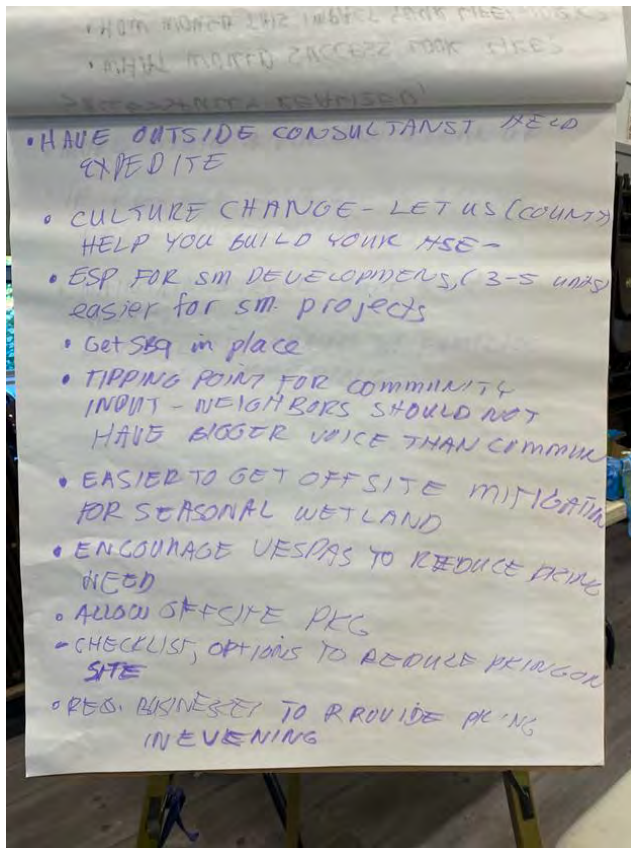 • HOW WOULD THIS IMPACT YOUR LIFE?
• WHAT WOULD SUCCESS LOOK LIKE?
• HAVE OUTSIDE CONSULTANST HELD
EXPEDITE
• CULTURE CHANGE - LET US (COUNTY)
HELP YOU BUILD YOUR HSE -
• ESP FOR SM DEVELOPMENS, (3-5 units)
easier for sm. projects
• Get SB9 in place
• TIPPING POINT FOR COMMUNITY
INPUT - NEIGHBORS SHOULD NOT
HAVE BIGGER VOICE THAN COMMUN
• EASIER TO GET OFFSITE MITIGATION
FOR SEASONAL WETLAND
• ENCOURAGE VESPAS TO REDUCE PKING
NEED
• ALLOW OFFSITE PKG
- CHECKLIST, OPTIONS TO REDUCE PKING ON
SITE
• REQ. BUSINESSES TO PROVIDE PKING
IN EVENING